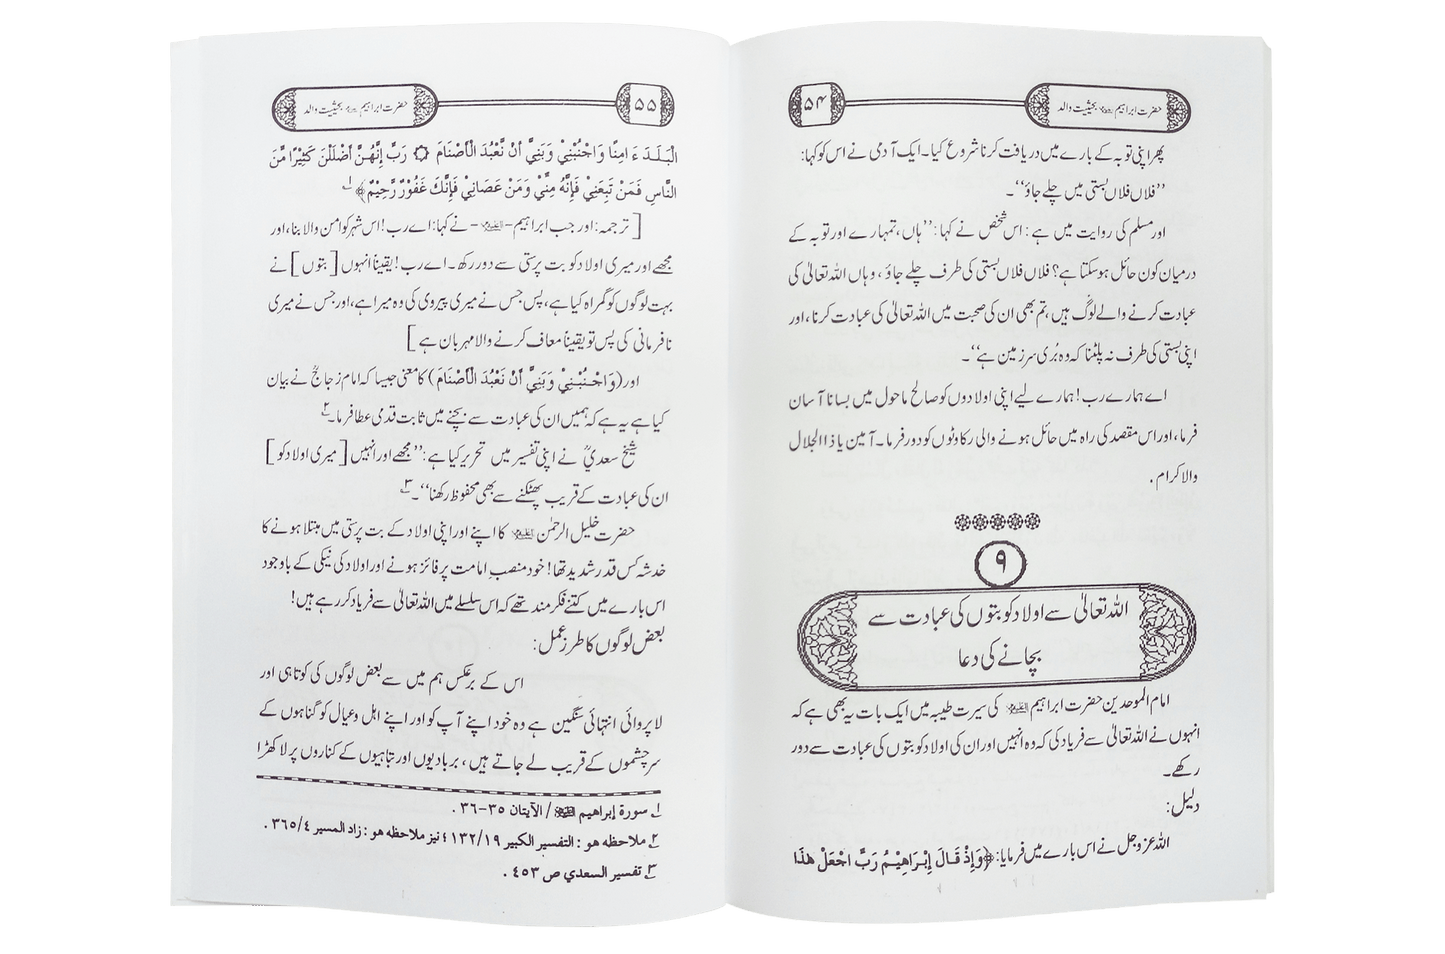 حضرت ابراہیم علیہ السلام بحیثیت والد
۵۴
پھر اپنی توبہ کے بارے میں دریافت کرنا شروع کیا۔ ایک آدمی نے اس کو کہا:
’’فلاں فلاں بستی میں چلے جاؤ‘‘۔
اور مسلم کی روایت میں ہے: اس شخص نے کہا: ’’ہاں، تمہارے اور توبہ کے
درمیان کون حائل ہو سکتا ہے؟ فلاں فلاں بستی کی طرف چلے جاؤ، وہاں اللہ تعالیٰ کی
عبادت کرنے والے لوگ ہیں، تم بھی ان کی صحبت میں اللہ تعالیٰ کی عبادت کرنا، اور
اپنی بستی کی طرف نہ پلٹنا کہ وہ بُری سر زمین ہے‘‘۔
اے ہمارے رب! ہمارے لیے اپنی اولادوں کو صالح ماحول میں بسانا آسان
فرما، اور اس مقصد کی راہ میں حائل ہونے والی رکاوٹوں کو دور فرما۔ آمین یا ذاالجلال
والاکرام.
۹
اللہ تعالیٰ سے اولاد کو بتوں کی عبادت سے
بچانے کی دعا
امام الموحدین حضرت ابراہیم علیہ السلام کی سیرت طیبہ میں ایک بات یہ بھی ہے کہ
انہوں نے اللہ تعالیٰ سے فریاد کی کہ وہ انہیں اور ان کی اولاد کو بتوں کی عبادت سے دور
رکھے۔
دلیل:
اللہ عزوجل نے اس بارے میں فرمایا: ﴿وَإِذْ قَالَ إِبْرَاهِيْمُ رَبِّ اجْعَلْ هٰذَا
حضرت ابراہیم علیہ السلام بحیثیت والد
۵۵
الْبَلَدَ ءَامِنًا وَاجْنُبْنِيْ وَبَنِيَّ أَنْ نَّعْبُدَ الْأَصْنَامَ ۞ رَبِّ إِنَّهُنَّ أَضْلَلْنَ كَثِيْرًا مِّنَ
النَّاسِ فَمَنْ تَبِعَنِيْ فَإِنَّهُ مِنِّيْ وَمَنْ عَصَانِيْ فَإِنَّكَ غَفُوْرٌ رَّحِيْمٌ﴾ ۱
[ترجمہ: اور جب ابراہیم -علیہ السلام- نے کہا: اے رب! اس شہر کو امن والا بنا، اور
مجھے اور میری اولاد کو بت پرستی سے دور رکھ۔ اے رب! یقیناً انہوں [بتوں] نے
بہت لوگوں کو گمراہ کیا ہے، پس جس نے میری پیروی کی وہ میرا ہے، اور جس نے میری
نافرمانی کی پس تو یقیناً معاف کرنے والا مہربان ہے]
اور (وَاجْنُبْنِيْ وَبَنِيَّ أَنْ نَّعْبُدَ الْأَصْنَامَ) کا معنی جیسا کہ امام زجاجؒ نے بیان
کیا ہے یہ ہے کہ ہمیں ان کی عبادت سے بچنے میں ثابت قدمی عطا فرما۔ ۲
شیخ سعدیؒ نے اپنی تفسیر میں تحریر کیا ہے: ’’مجھے اور انہیں [میری اولاد کو]
ان کی عبادت کے قریب پھٹکنے سے بھی محفوظ رکھنا‘‘۔ ۳
حضرت خلیل الرحمٰن علیہ السلام کا اپنے اور اپنی اولاد کے بت پرستی میں مبتلا ہونے کا
خدشہ کس قدر شدید تھا! خود منصبِ امامت پر فائز ہونے اور اولاد کی نیکی کے باوجود
اس بارے میں کتنے فکر مند تھے کہ اس سلسلے میں اللہ تعالیٰ سے فریاد کر رہے ہیں!
بعض لوگوں کا طرزِ عمل:
اس کے برعکس ہم میں سے بعض لوگوں کی کوتاہی اور
لاپروائی انتہائی سنگین ہے وہ خود اپنے آپ کو اور اپنے اہل وعیال کو گناہوں کے
سرچشموں کے قریب لے جاتے ہیں، بربادیوں اور تباہیوں کے کناروں پر لا کھڑا
۱ سورة إبراهيم علیہ السلام / الآيتان ۳۵-۳۶.
۲ ملاحظہ ہو: التفسير الكبير ۱۳۲/۱۹؛ نیز ملاحظہ ہو: زاد المسير ۳۶۵/۴.
۳ تفسير السعدي ص ۴۵۳.